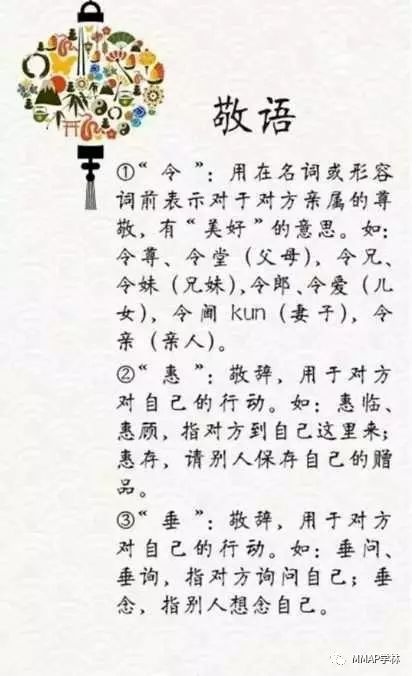 敬语
①“令”：用在名词或形容
词前表示对于对方亲属的尊
敬，有“美好”的意思。如：
令尊、令堂（父母），令兄、
令妹（兄妹），令郎、令爱（儿
女），令阃kun（妻子），令
亲（亲人）。
②“惠”：敬辞，用于对方
对自己的行动。如：惠临、
惠顾，指对方到自己这里来；
惠存，请别人保存自己的赠
品。
③“垂”：敬辞，用于对方
对自己的行动。如：垂问、
垂询，指对方询问自己；垂
念，指别人想念自己。
MMAP学林